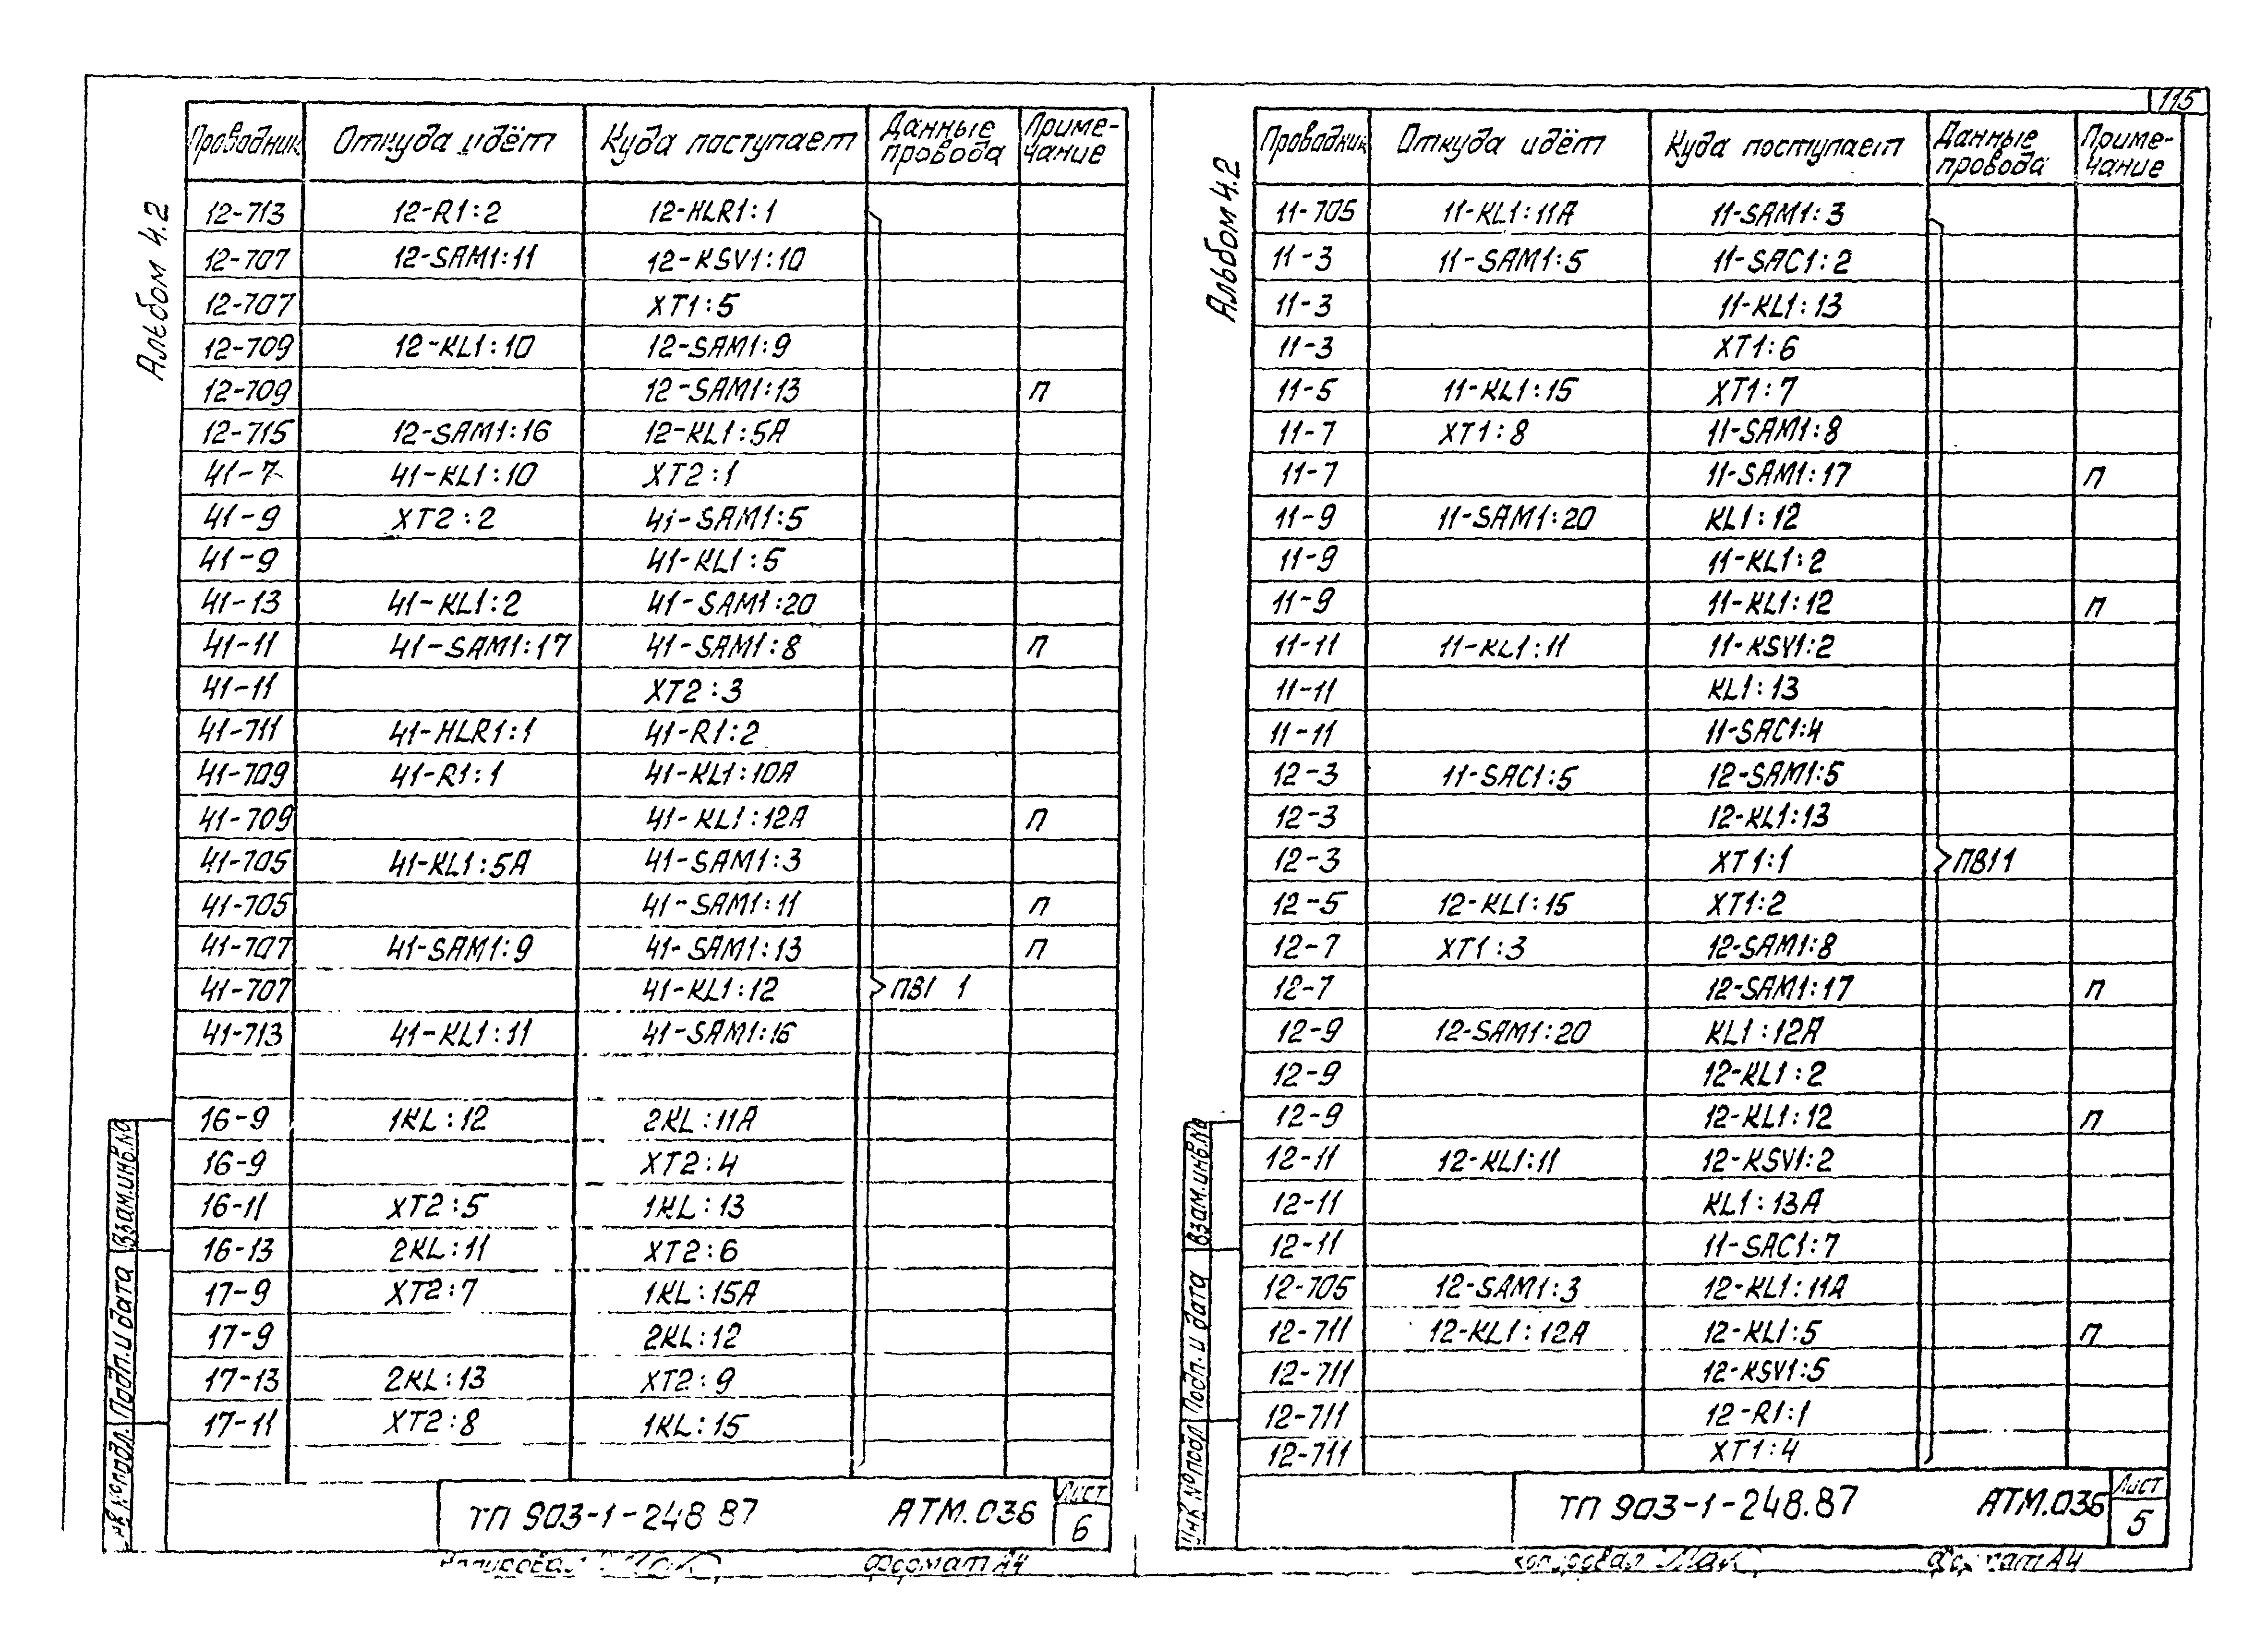 115
Альбом 4.2
Проводник Откуда идёт Куда поступает Данные провода Примечание
12-713 12-R1:2 12-HLR1:1
12-707 12-SAM1:11 12-KSV1:10
12-707 XT1:5
12-709 12-KL1:10 12-SAM1:9
12-709 12-SAM1:13 П
12-715 12-SAM1:16 12-KL1:5A
41-7 41-KL1:10 XT2:1
41-9 XT2:2 41-SAM1:5
41-9 41-KL1:5
41-13 41-KL1:2 41-SAM1:20
41-11 41-SAM1:17 41-SAM1:8 П
41-11 XT2:3
41-711 41-HLR1:1 41-R1:2
41-709 41-R1:1 41-KL1:10A
41-709 41-KL1:12A П
41-705 41-KL1:5A 41-SAM1:3
41-705 41-SAM1:11 П
41-707 41-SAM1:9 41-SAM1:13 П
41-707 41-KL1:12 ПВ1 1
41-713 41-KL1:11 41-SAM1:16
16-9 1KL:12 2KL:11A
16-9 XT2:4
16-11 XT2:5 1KL:13
16-13 2KL:11 XT2:6
17-9 XT2:7 1KL:15A
17-9 2KL:12
17-13 2KL:13 XT2:9
17-11 XT2:8 1KL:15
Взам.инв.№
Подп.и дата
ТП 903-1-248 87 АТМ.036 Лист 6
Формат А4
Альбом 4.2
Проводник Откуда идёт Куда поступает Данные провода Примечание
11-705 11-KL1:11A 11-SAM1:3
11-3 11-SAM1:5 11-SAC1:2
11-3 11-KL1:13
11-3 XT1:6
11-5 11-KL1:15 XT1:7
11-7 XT1:8 11-SAM1:8
11-7 11-SAM1:17 П
11-9 11-SAM1:20 KL1:12
11-9 11-KL1:2
11-9 11-KL1:12 П
11-11 11-KL1:11 11-KSV1:2
11-11 KL1:13
11-11 11-SAC1:4
12-3 11-SAC1:5 12-SAM1:5
12-3 12-KL1:13
12-3 XT1:1 ПВ1 1
12-5 12-KL1:15 XT1:2
12-7 XT1:3 12-SAM1:8
12-7 12-SAM1:17 П
12-9 12-SAM1:20 KL1:12A
12-9 12-KL1:2
12-9 12-KL1:12 П
12-11 12-KL1:11 12-KSV1:2
12-11 KL1:13A
12-11 11-SAC1:7
12-705 12-SAM1:3 12-KL1:11A
12-711 12-KL1:12A 12-KL1:5 П
12-711 12-KSV1:5
12-711 12-R1:1
12-711 XT1:4
Взам.инв.№
Подп. и дата
Инв №подл
ТП 903-1-248.87 АТМ.036 Лист 5
Копировал Формат А4